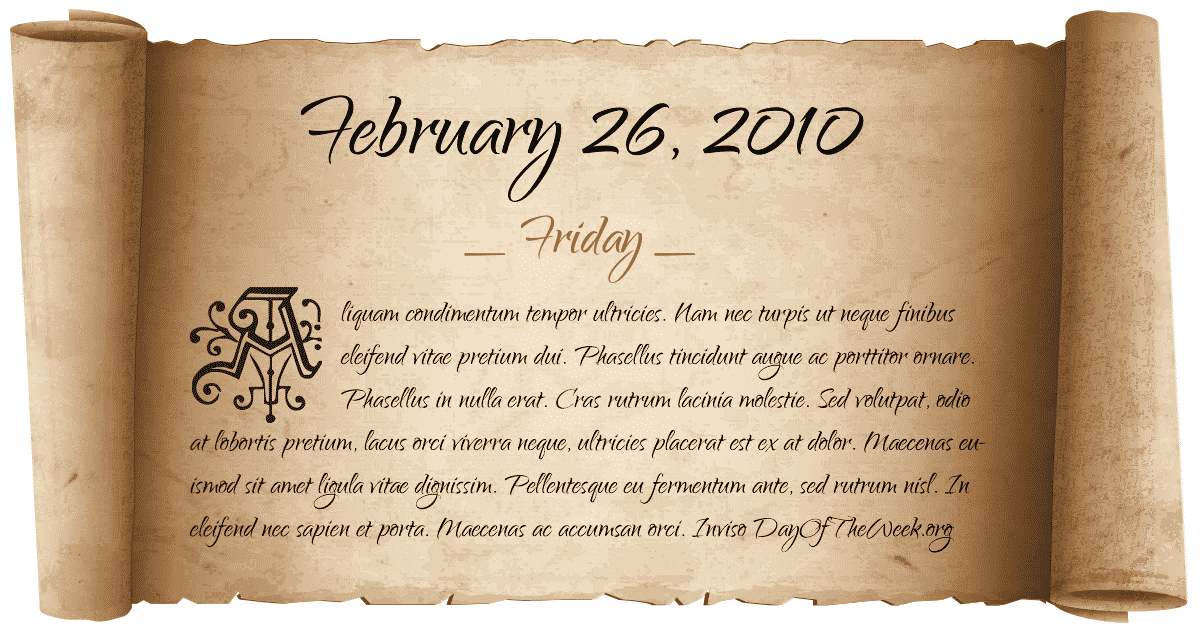 February 26, 2010
— Friday —
Aliquam condimentum tempor ultricies. Nam nec turpis ut neque finibus
eleifend vitae pretium dui. Phasellus tincidunt augue ac porttitor ornare.
Phasellus in nulla erat. Cras rutrum lacinia molestie. Sed volutpat, odio
at lobortis pretium, lacus orci viverra neque, ultricies placerat est ex at dolor. Maecenas eu-
ismod sit amet ligula vitae dignissim. Pellentesque eu fermentum ante, sed rutrum nisl. In
eleifend nec sapien et porta. Maecenas ac accumsan orci. Inviso DayOfTheWeek.org